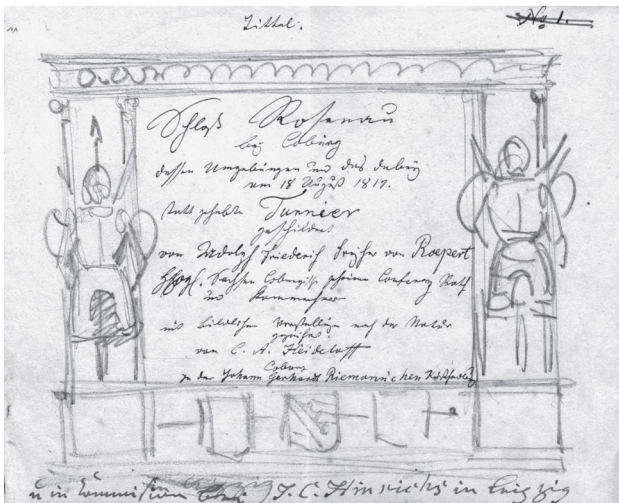 Tittel.
No 1.
Schloß Rosenau
bei Coburg
dessen Umgebungen und das dabey
am 18 August 1817.
statt gehabte Turnier
geschildert
von Adolph Friederich Freyherr von Roepert
Herzogl. Sachsen Coburgisch geheime Conferenz Rath
und Kammerherr
mit bildlichen Vorstellungen nach der Natur
von C. A. Heideloff
Coburg
in der Johann Gerhardt Riemannischen
u in Commission J. C. Hinrichs in Leipzig